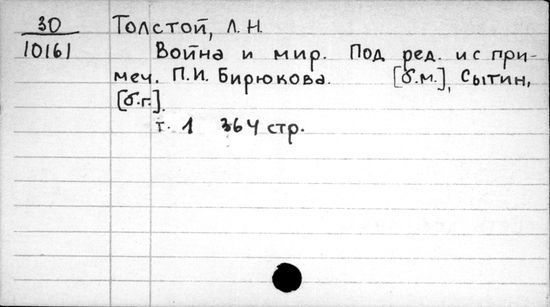 30 Толстой, Л. Н.
10161 Война и мир. Под ред. и с при-
меч. П.И. Бирюкова. [б.м.], Сытин,
[б.г.].
т. 1 364 стр.